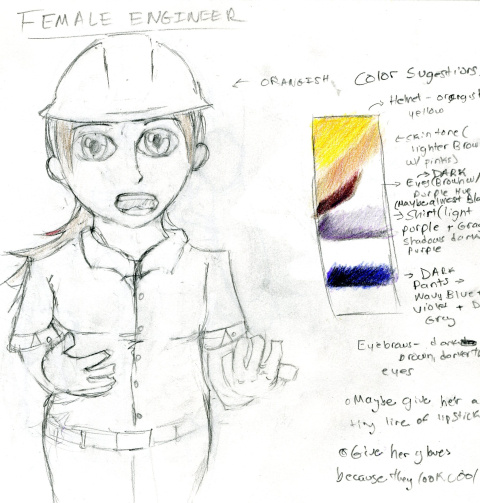 FEMALE ENGINEER
← ORANGISH
Color Sugestions:
→ Helmet - orangish
yellow
← skin tone (
lighter Brow
w/ pinks)
→ DARK
→ Eyes (Brown w/
purple Hue
(Maybe almost Bla
→ Shirt (light
purple + Gray
shadows
Purple
→ DARK
Pants →
Navy Blue +
violet + D
Gray
Eyebrows - dark
brown, darker th
eyes
Maybe give her a
tiny line of lipstick
Give her gloves
because they look cool